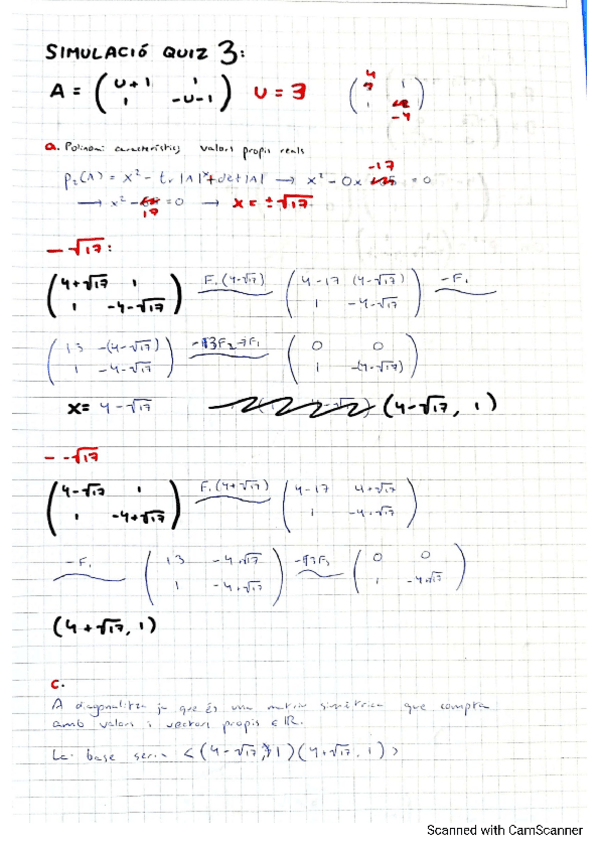 SIMULACIÓ QUIZ 3:
A = ( U+1 1 ; 1 -U-1 ) U = 3 ( 4 1 ; 1 -4 )
a. Polinomi característic, valors propis reals
P₂(A) = x² - tr|A|x + det|A| → x² - 0x -17 = 0
→ x² - 17 = 0 → x = ±√17.
- √17:
( 4+√17 1 ; 1 -4-√17 ) F₁(4-√17) ( 4-17 (4-√17) ; 1 -4-√17 ) -F₁
( 13 -(4-√17) ; 1 -4-√17 ) -13F₂→F₁ ( 0 0 ; 1 -(4-√17) )
x = 4-√17 (4-√17, 1)
- -√17
( 4-√17 1 ; 1 -4+√17 ) F₁(4+√17) ( 4-17 4+√17 ; 1 -4+√17 )
-F₁ ( 13 -4+√17 ; 1 -4+√17 ) ( 0 0 ; 1 -4+√17 )
(4+√17, 1)
c.
A diagonalitza ja que és una matriu simètrica que compta
amb valors i vectors propis ∈ℝ.
La base seria <(4-√17, 1)(4+√17, 1)>
Scanned with CamScanner